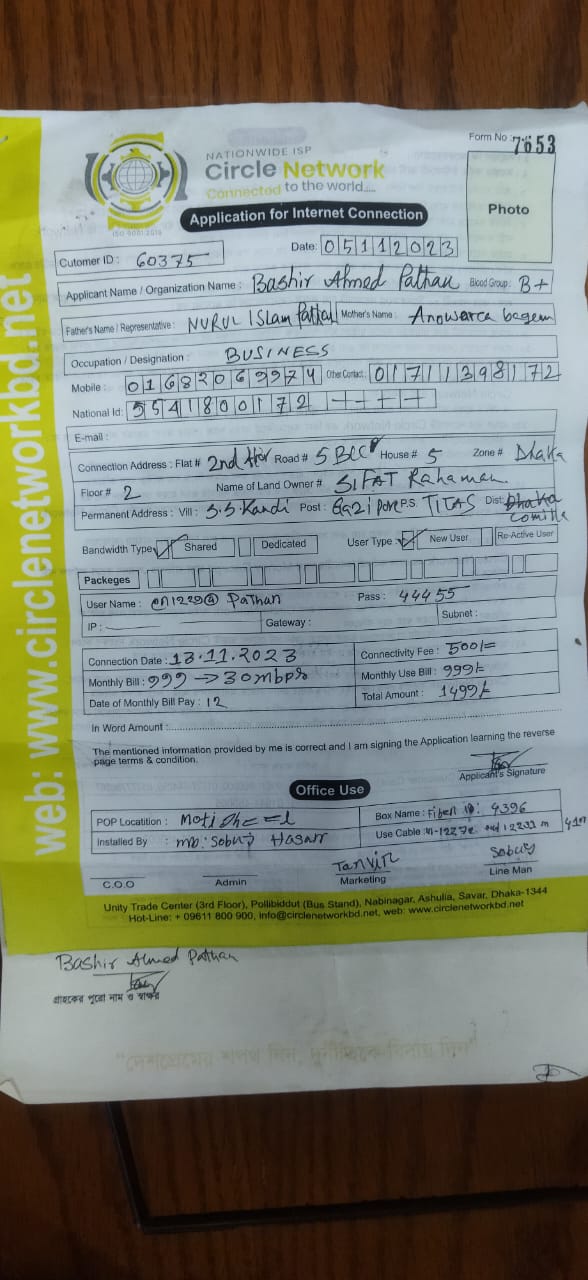 Form No : 7653
NATIONWIDE ISP
Circle Network
Connected to the world.....
ISO 9001:2015
Application for Internet Connection
Photo
Date: 05112023
Cutomer ID : 60375
Applicant Name / Organization Name : Bashir Ahmed Pathan Blood Group: B+
Father's Name / Representative : NURUL ISlam Pathan Mother's Name : Anowarea begem
Occupation / Designation : BUSINESS
Mobile : 01682069974 Other Contact : 01711398172
National Id: 5541800172
E-mail :
Connection Address : Flat # 2nd Road # 5 BCC House # 5 Zone # Dhaka
Floor # 2 Name of Land Owner # SIFAT Rahaman
Permanent Address : Vill : S.S Kandi Post : Gazi pore P.S TITAS Dist: Dhaka
Comilla
Bandwidth Type Shared Dedicated User Type : New User Re-Active User
Packeges
User Name : Pathan Pass : 44455
IP : Gateway : Subnet :
Connection Date : 13.11.2023 Connectivity Fee : 500/=
Monthly Bill : 999 → 30mbps Monthly Use Bill : 999/-
Date of Monthly Bill Pay : 12 Total Amount : 1499/-
In Word Amount :
The mentioned information provided by me is correct and I am signing the Application learning the reverse
page terms & condition.
Applicant's Signature
Office Use
POP Locatition : Motijheel Box Name : Fiber ID: 4396
Installed By : MD. Sobuj Hasan Use Cable
Tanvir Sobuj
C.O.O Admin Marketing Line Man
Unity Trade Center (3rd Floor), Pollibiddut (Bus Stand), Nabinagar, Ashulia, Savar, Dhaka-1344
Hot-Line: + 09611 800 900, info@circlenetworkbd.net, web: www.circlenetworkbd.net
web: www.circlenetworkbd.net
Bashir Ahmed Pathan
গ্রাহকের পুরো নাম ও স্বাক্ষর
"দেশপ্রেমের শপথ নিন, দুর্নীতিকে বিদায় দিন"